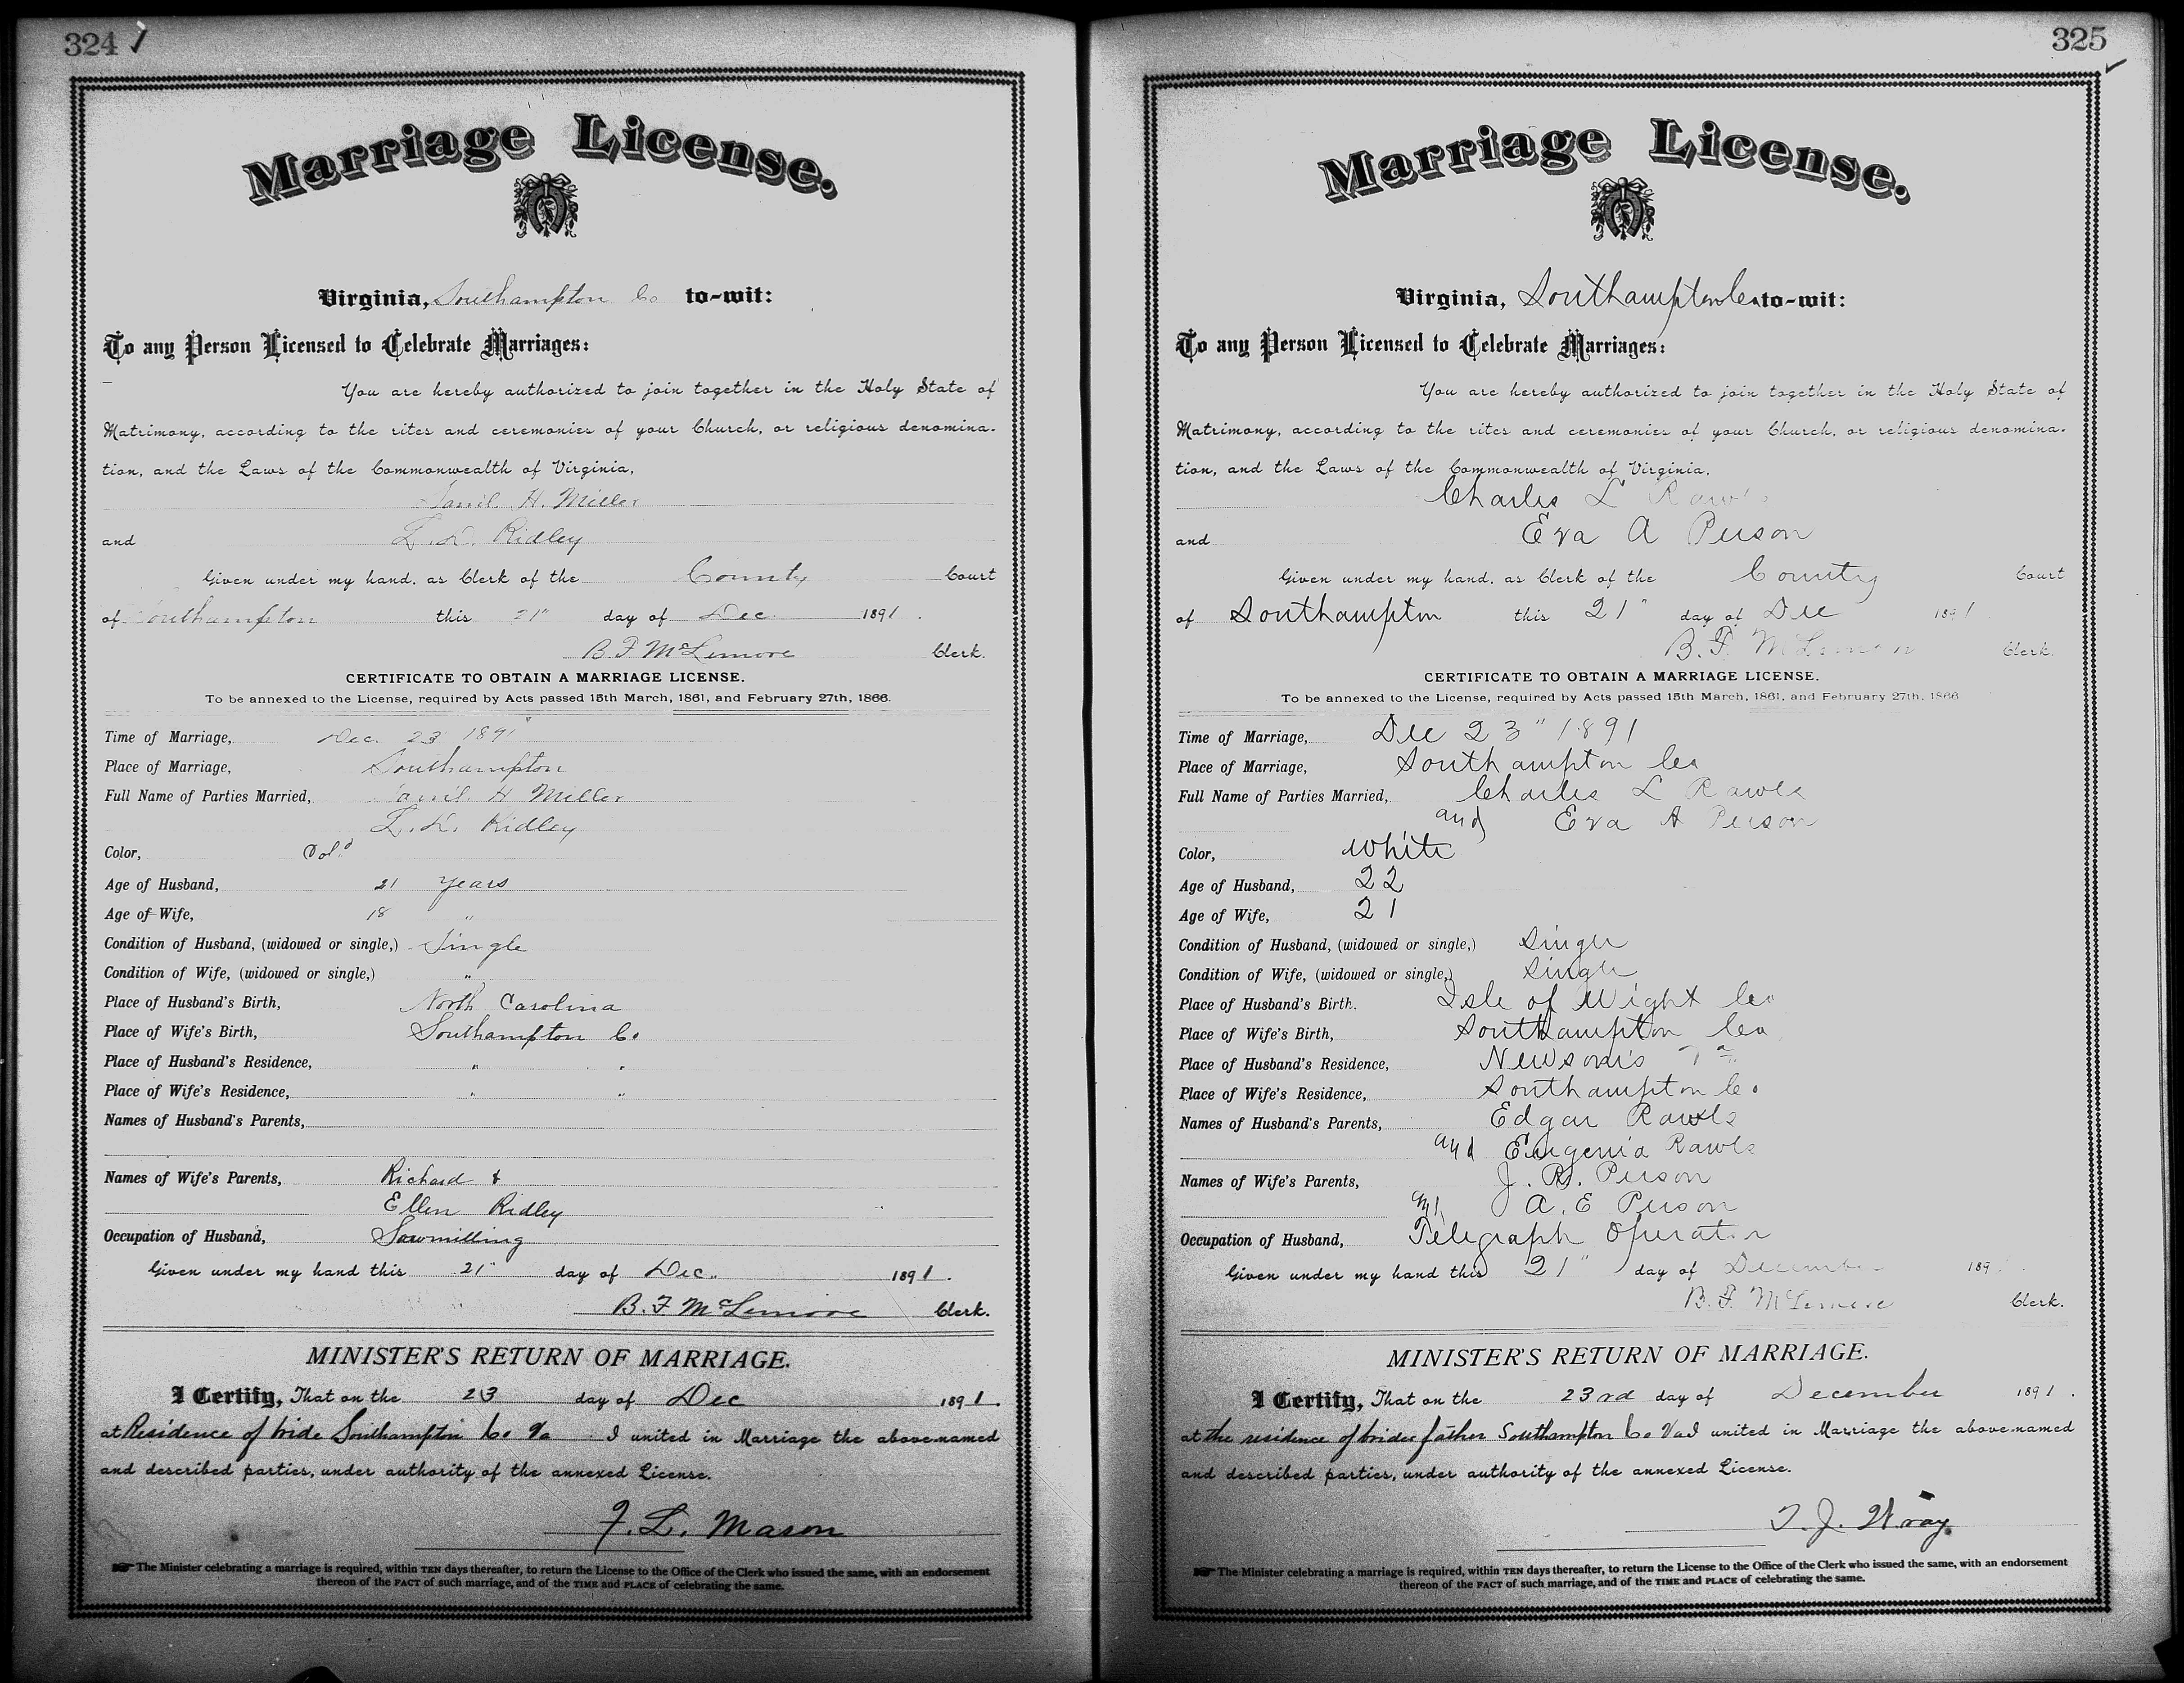 324
Marriage License.
Virginia, Southampton Co to-wit:
To any Person Licensed to Celebrate Marriages:
You are hereby authorized to join together in the Holy State of
Matrimony, according to the rites and ceremonies of your Church, or religious denomina-
tion, and the Laws of the Commonwealth of Virginia,
H. Miller
and Ridley
Given under my hand, as Clerk of the County Court
of Southampton this 21" day of Dec 1891.
B. F. McLemore Clerk.
CERTIFICATE TO OBTAIN A MARRIAGE LICENSE.
To be annexed to the License, required by Acts passed 15th March, 1861, and February 27th, 1866.
Time of Marriage, Dec. 23" 1891
Place of Marriage, Southampton
Full Name of Parties Married, H Miller
Ridley
Color, Col.d
Age of Husband, 21 years
Age of Wife, 18 "
Condition of Husband, (widowed or single,) Single
Condition of Wife, (widowed or single,) "
Place of Husband's Birth, North Carolina
Place of Wife's Birth, Southampton Co
Place of Husband's Residence, " "
Place of Wife's Residence, " "
Names of Husband's Parents,
Names of Wife's Parents, Richard &
Ellen Ridley
Occupation of Husband, Sawmilling
Given under my hand this 21" day of Dec. 1891.
B. F. McLemore Clerk.
MINISTER'S RETURN OF MARRIAGE.
I Certify, That on the 23 day of Dec 1891.
at Residence of bride Southampton Co Va I united in Marriage the above-named
and described parties, under authority of the annexed License.
F. L. Mason
The Minister celebrating a marriage is required, within TEN days thereafter, to return the License to the Office of the Clerk who issued the same, with an endorsement
thereon of the FACT of such marriage, and of the TIME and PLACE of celebrating the same.
325
Marriage License.
Virginia, Southampton Co to-wit:
To any Person Licensed to Celebrate Marriages:
You are hereby authorized to join together in the Holy State of
Matrimony, according to the rites and ceremonies of your Church, or religious denomina-
tion, and the Laws of the Commonwealth of Virginia,
Charles L Rawls
and Eva A Person
Given under my hand, as Clerk of the County Court
of Southampton this 21" day of Dec 1891.
B. F. McLemore Clerk.
CERTIFICATE TO OBTAIN A MARRIAGE LICENSE.
To be annexed to the License, required by Acts passed 15th March, 1861, and February 27th, 1866
Time of Marriage, Dec 23" 1891
Place of Marriage, Southampton Co
Full Name of Parties Married, Charles L Rawls
and Eva A Person
Color, White
Age of Husband, 22
Age of Wife, 21
Condition of Husband, (widowed or single,) Single
Condition of Wife, (widowed or single,) Single
Place of Husband's Birth. Isle of Wight Co
Place of Wife's Birth, Southampton Co
Place of Husband's Residence, Newsom's Va
Place of Wife's Residence, Southampton Co
Names of Husband's Parents, Edgar Rawls
and Eugenia Rawls
Names of Wife's Parents, J. B. Person
and A. E Person
Occupation of Husband, Telegraph Operator
Given under my hand this 21" day of December 189
B. F. McLemore Clerk.
MINISTER'S RETURN OF MARRIAGE.
I Certify, That on the 23rd day of December 1891.
at the residence of brides father Southampton Co Va I united in Marriage the above-named
and described parties, under authority of the annexed License.
T. J. Wray
The Minister celebrating a marriage is required, within TEN days thereafter, to return the License to the Office of the Clerk who issued the same, with an endorsement
thereon of the FACT of such marriage, and of the TIME and PLACE of celebrating the same.